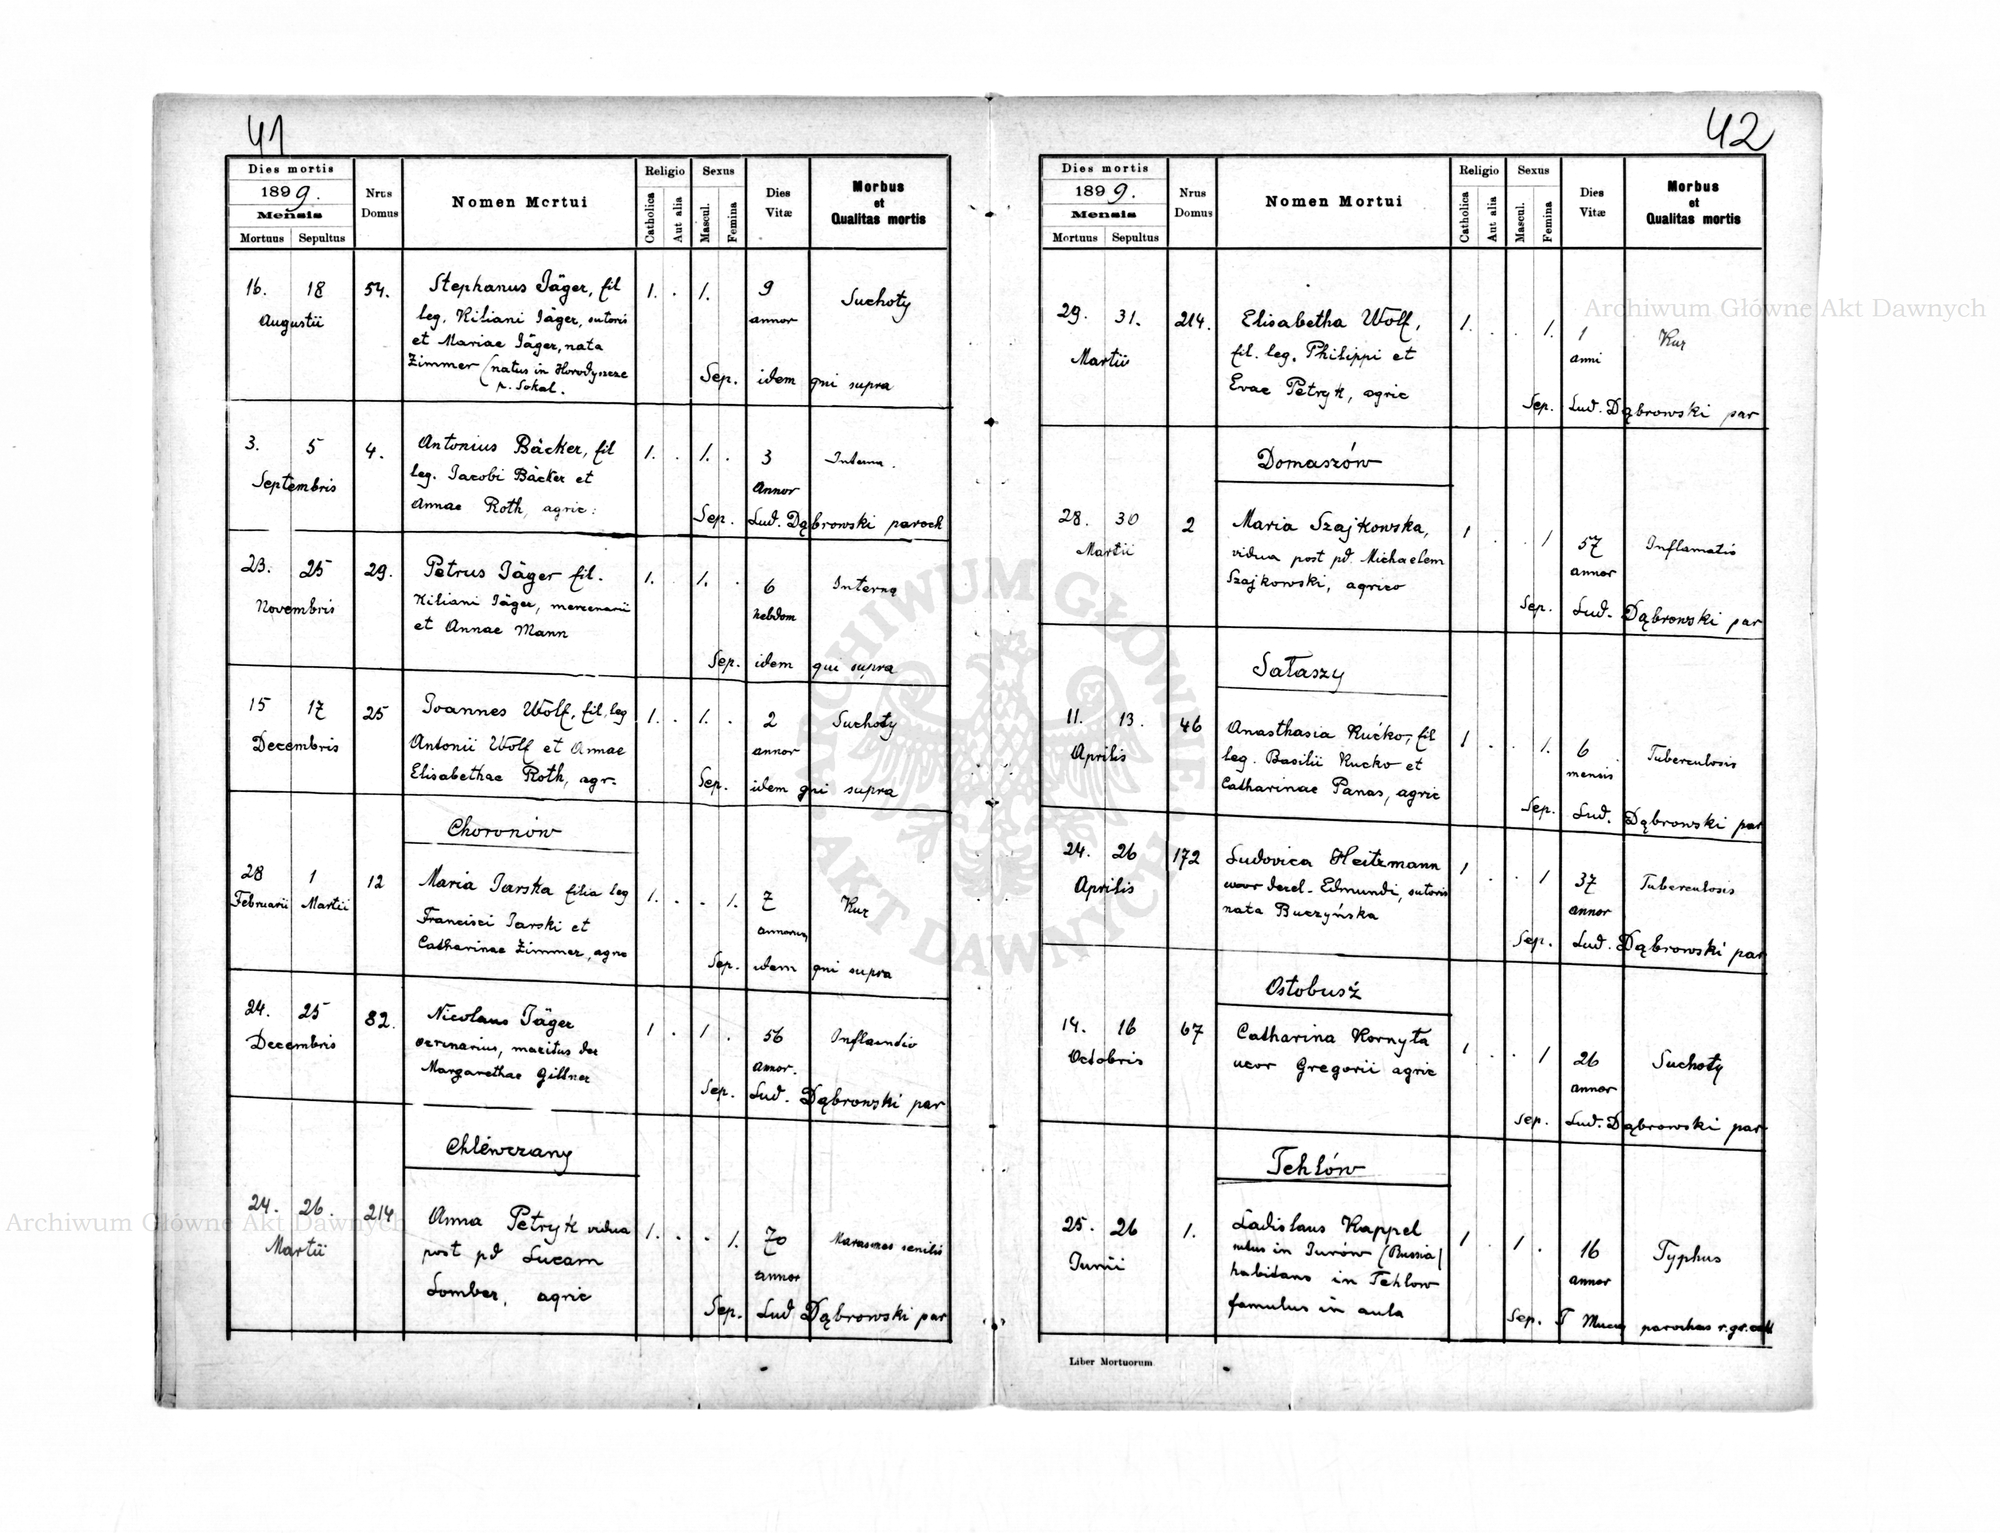 41
Dies mortis
1899.
Mensis
Mortuus Sepultus
Nrus Domus
Nomen Mortui
Religio
Catholica
Aut alia
Sexus
Mascul.
Femina
Dies Vitæ
Morbus et Qualitas mortis
16. 18 54. Stephanus Jäger, fil 1. . 1. 9 Suchoty
Augustii leg. Kiliani Jäger, sutoris annor
et Mariae Jäger, nata
Zimmer (natus in Horodyszcze Sep. idem qui supra
p. Sokal.
3. 5 4. Antonius Bäcker, fil 1. . 1. . 3 Interna.
Septembris leg. Jacobi Bäcker et Annor
Annae Roth, agric: Sep. Lud. Dąbrowski paroch
23. 25 29. Petrus Jäger fil. 1. . 1. . 6 Interna
Novembris Kiliani Jäger, mercenarii hebdom
et Annae Mann
Sep. idem qui supra
15 17 25 Joannes Wolf, fil. leg 1. . 1. . 2 Suchoty
Decembris Antonii Wolf et Annae annor
Elisabethae Roth, agr. Sep. idem qui supra
Choronów
28 1 12 Maria Jarska filia leg 1. . . 1. 7 Kur
Februarii Martii Francisci Jarski et annorum
Catharinae Zimmer, agric Sep. idem qui supra
24. 25 82. Nicolaus Jäger 1 . 1 . 56
Decembris maritus der annor.
Margarethae Gittner Sep. Lud. Dąbrowski par
Chlewczany
24. 26. 214 Anna Petryk vidua 1. . . 1. 70 Marasmus senilis
Martii post pd Lucam annor
Lomber, agric Sep. Lud Dąbrowski par
42
Dies mortis
1899.
Mensis
Mortuus Sepultus
Nrus Domus
Nomen Mortui
Religio
Catholica
Aut alia
Sexus
Mascul.
Femina
Dies Vitæ
Morbus et Qualitas mortis
29. 31. 214. Elisabetha Wolf, 1. . . 1. 1 Kur
Martii fil. leg. Philippi et anni
Evae Petryk, agric Sep. Lud. Dąbrowski par
Domaszów
28. 30 2 Maria Szajkowska, 1 . . 1 57 Inflamatio
Martii vidua post pd. Michaelem annor
Szajkowski, agrico Sep. Lud. Dąbrowski par
Sałaszy
11. 13. 46 Anasthasia Kućko, fil 1 . . 1. 6 Tuberculosis
Aprilis leg. Basilii Kucko et mensis
Catharinae Panas, agric Sep. Lud. Dąbrowski par
24. 26 172 Ludovica Heitzmann 1 . . 1 37 Tuberculosis
Aprilis uxor derel. Edmundi, sutoris annor
nata Buczyńska Sep. Lud. Dąbrowski par
Ostobusź
14. 16 67 Catharina Kornyta 1 . . 1 26 Suchoty
Octobris uxor Gregorii agric annor
Sep. Lud. Dąbrowski par
Tehlów
25. 26 1. Ladislaus Kappel 1 . 1 . 16 Typhus
Junii natus in Jurów (Russia) annor
habitans in Tehlow
famulus in aula Sep. parochus r. gr. cath
Liber Mortuorum
Archiwum Główne Akt Dawnych
Archiwum Główne Akt Dawnych
ARCHIWUM GŁÓWNE AKT DAWNYCH